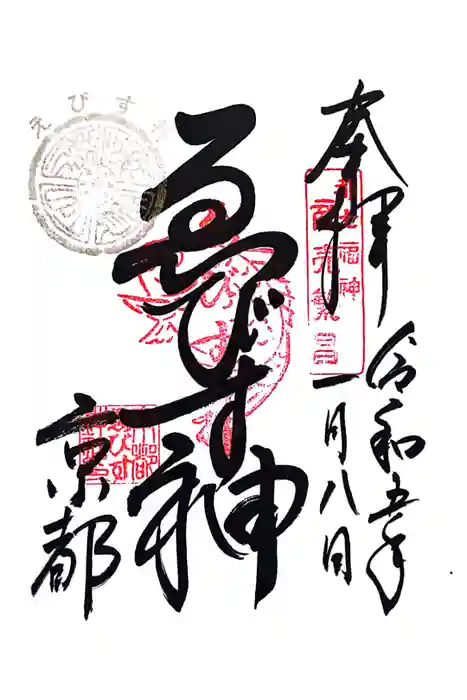 奉拝
令和五年
一月八日
七福神
商売繁昌
ゑびす神
えびす
京都